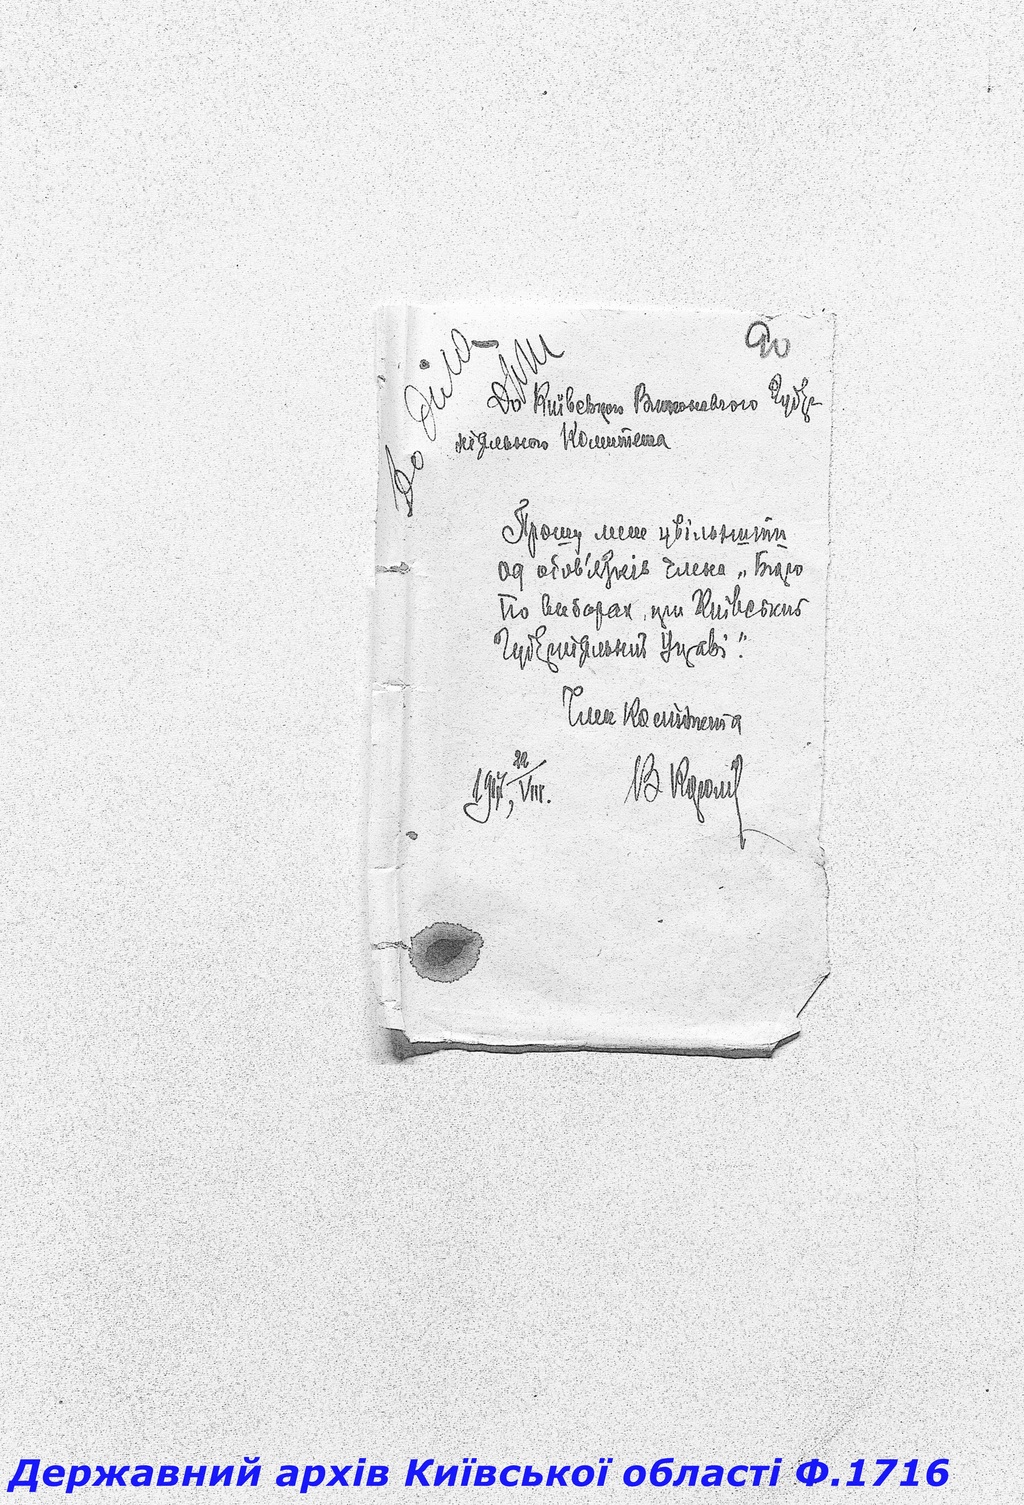 90
До діла
До Київського Виконавчого Губер-
ніяльного Комитета
Прошу мене увільнити
од обов'язків члена „Бюро
по виборах при Київський
Губерніяльний Управі".
Член Комитета
1917, 22/VIII. В Королів
Державний архів Київської області Ф.1716